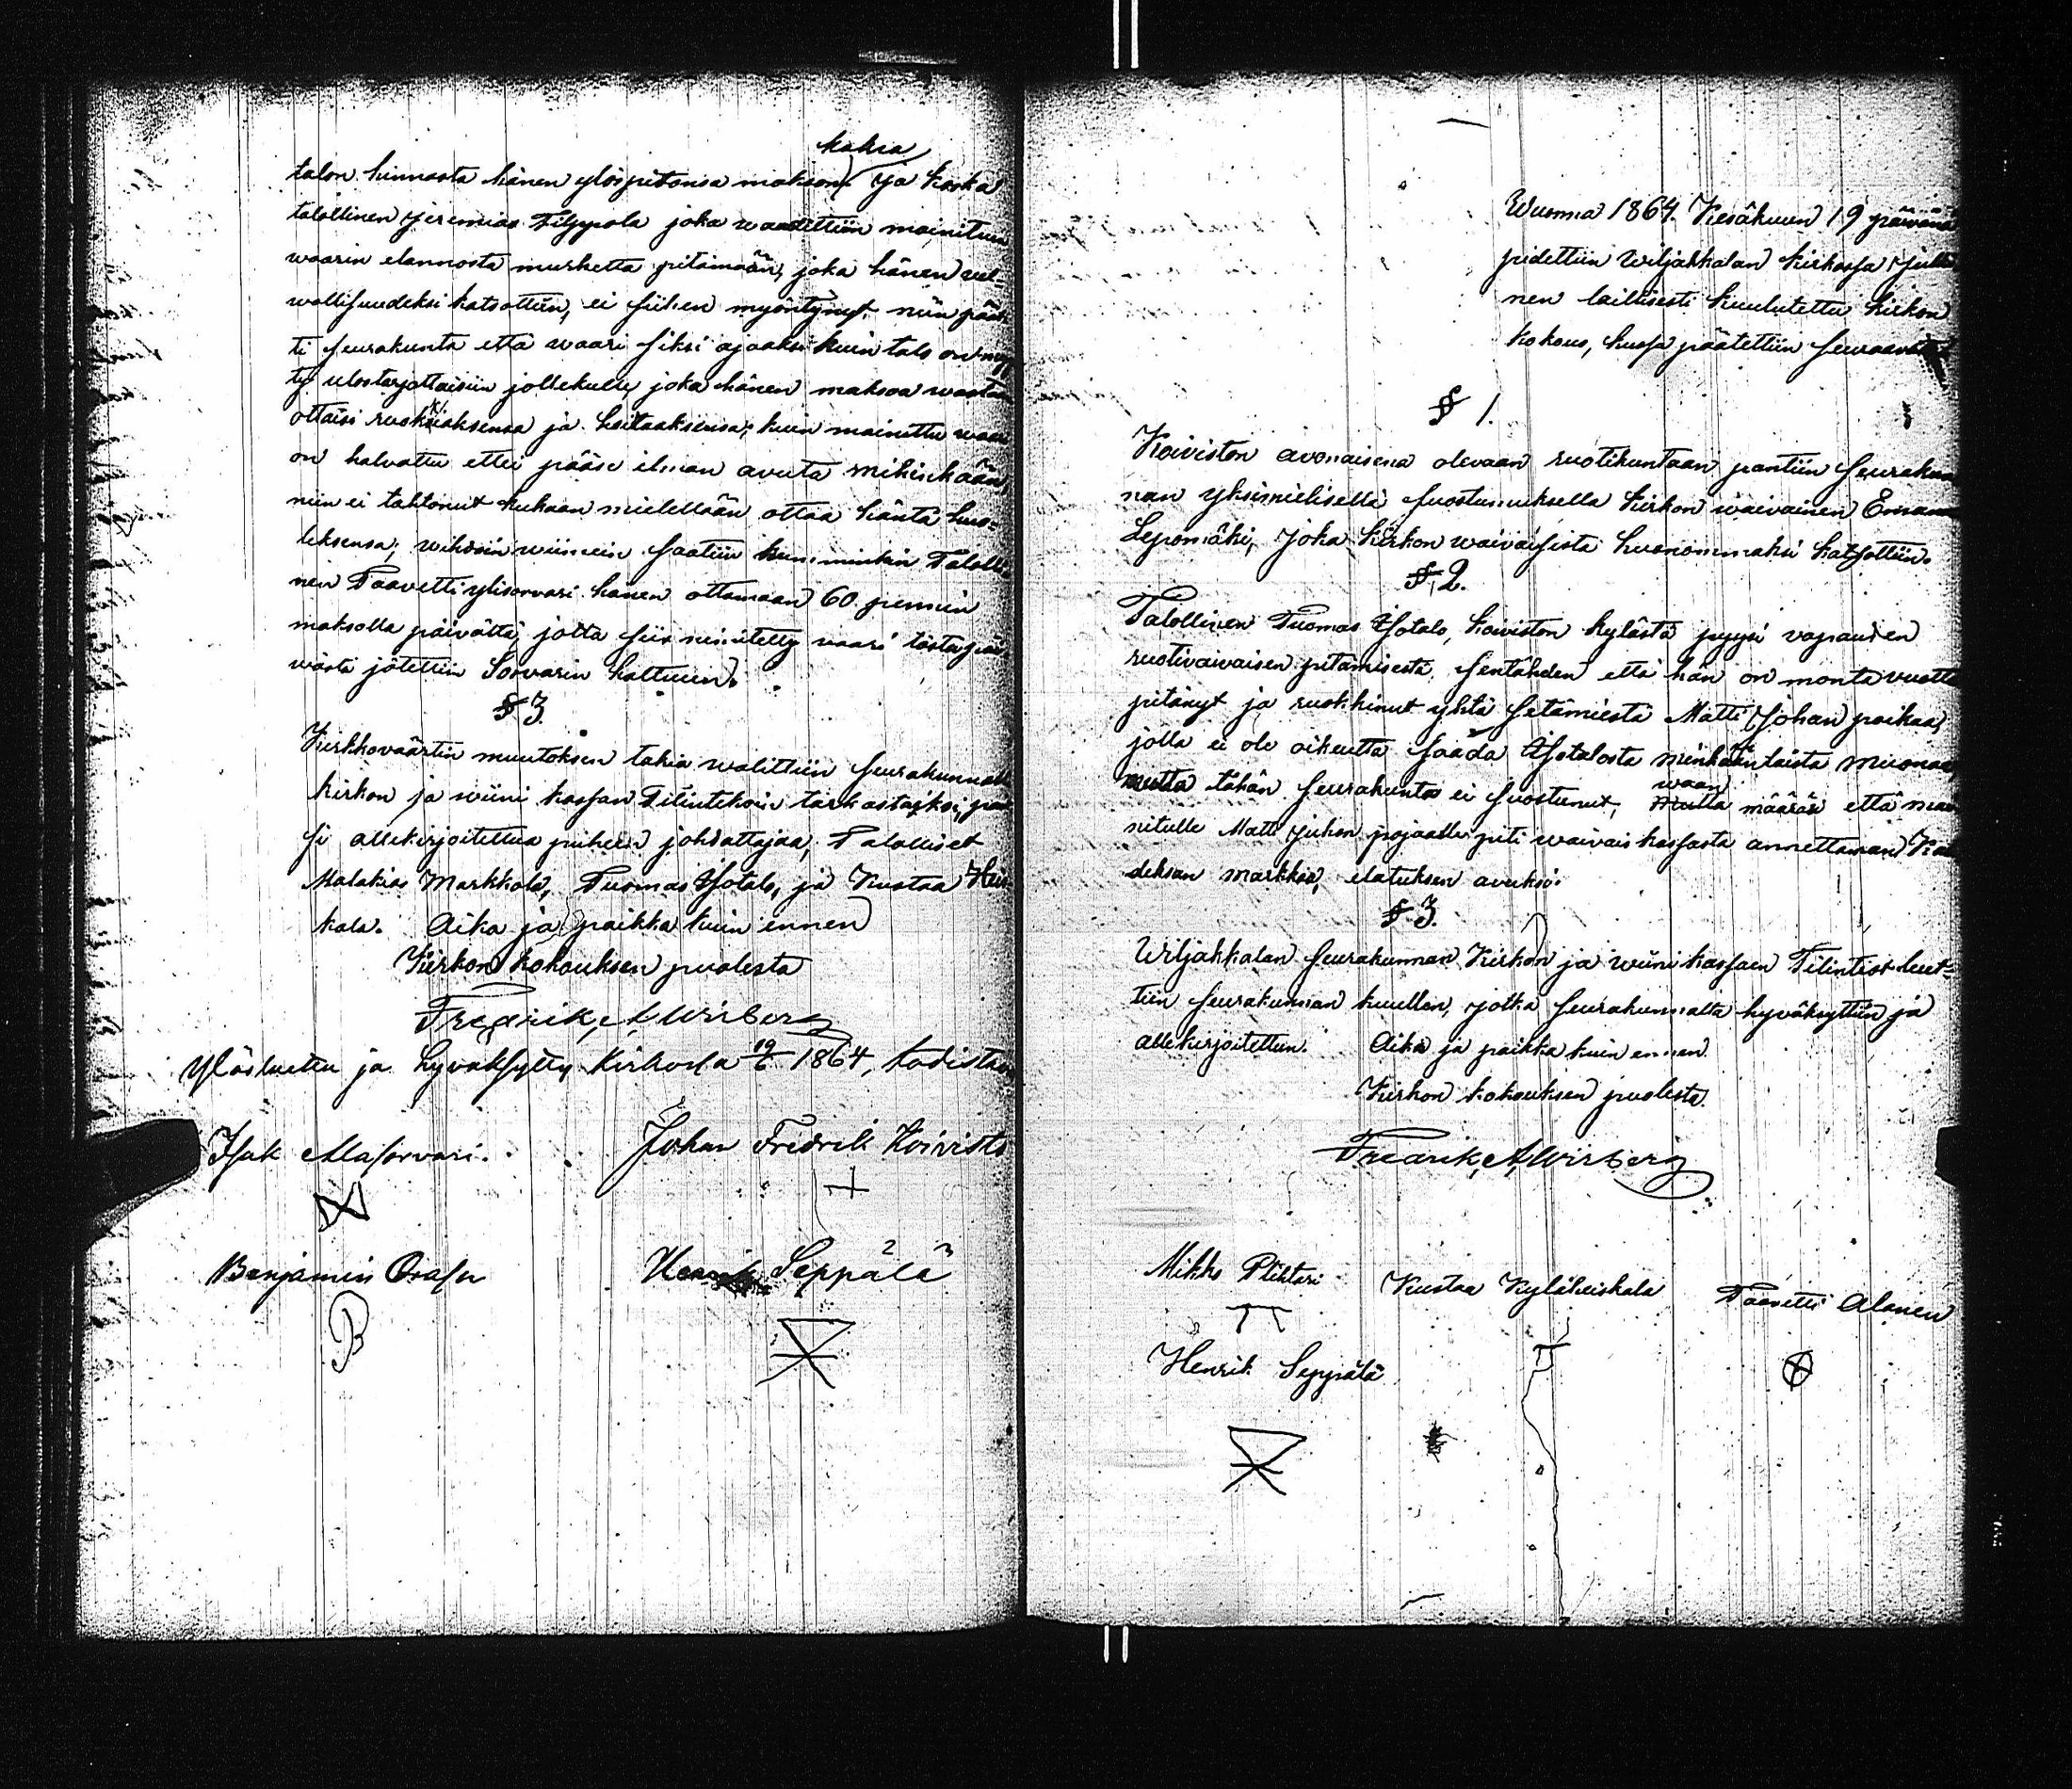 kakia
talon hinnasta hänen ylöspitonsa makson. Ja koska
talollinen Jeremias Filppola joka waadittiin mainitun
waarin elannosta murhetta pitämään, joka hänen vel-
wollisuudeksi katsottiin, ei siihen myöntynyt, niin päät-
ti seurakunta että waari siksi ajaaksi kuin talo on myy
ty ulostarjottaisiin jollekulle, joka hänen maksoa wastaan
ottaisi ruokkiaksensa ja hoitaaksensa; kuin mainittu waari
on halvattu ettei pääse ilman avuta mihinkään,
niin ei tahtonut kukaan mielellään ottaa häntä huo-
leksensa; wihdoin wiimein saatiin kumminkin Talolli-
nen Taavetti ylisorvari hänen ottamaan 60 pennin
maksolla päivältä, jolta siis nimitetty vaari tästä päi
wästä jätettiin Sorvarin haltuun.
§ 3
Kirkkoväärtin muutoksen takia walittiin seurakunnalta
kirkon ja wiini kassan Tilintekoin tarkastajiksi, pait
si allekirjoitettua puheen johdattajaa, Talolliset
Malakias Markkola, Tuomas Isotalo, ja Kustaa Heis
kala. Aika ja paikka kuin ennen
Kirkon kokouksen puolesta
Fredrik A Wirberg
Ylösluettu ja hyväksytty kirkossa 19/6 1864, todistaa
Isak Alasorvari. Johan Fredrik Koivisto
Benjamin Orasu Seppälä
B
Wuonna 1864. Kesäkuun 19 päivänä
pidettiin Wiljakkalan kirkossa julki
nen laillisesti kuulutettu kirkon
kokous, kussa päätettiin seuraavat
§ 1.
Koiviston avonaisena olevaan ruotikuntaan pantiin seurakun
nan yksimielisellä suostumuksella kirkon waivainen
Lepomäki, joka kirkon waivaisista huonommaksi katsottiin.
§ 2.
Talollinen Tuomas Isotalo, Koiviston kylästä pyysi vapauden
ruotivaivaisen pitämisestä, sentähden että hän on monta vuotta
pitänyt ja ruokkinut yhtä setämiestä Matti Johan poikaa,
jolla ei ole oikeutta saada Isotalosta minkäänlaista muonaa
waan
mutta tähän seurakunta ei suostunut, mutta määräsi että mai
nitulle Matti Juhan pojaalle piti waivais kassasta annettaman Kah
deksan markkaa, elatuksen avuksi.
§ 3.
Wiljakkalan seurakunnan Kirkon ja wiini kassaen Tilintiot luet-
tiin seurakunnan kuullen, jotka seurakunnalta hyväksyttiin ja
allekirjoitettiin. Aika ja paikka kuin ennen.
Kirkon kokouksen puolesta.
Fredrik A Wirberg
Mikko Plihtari Kustaa Kyläheiskala Taavetti Alanen
Henrik Seppälä